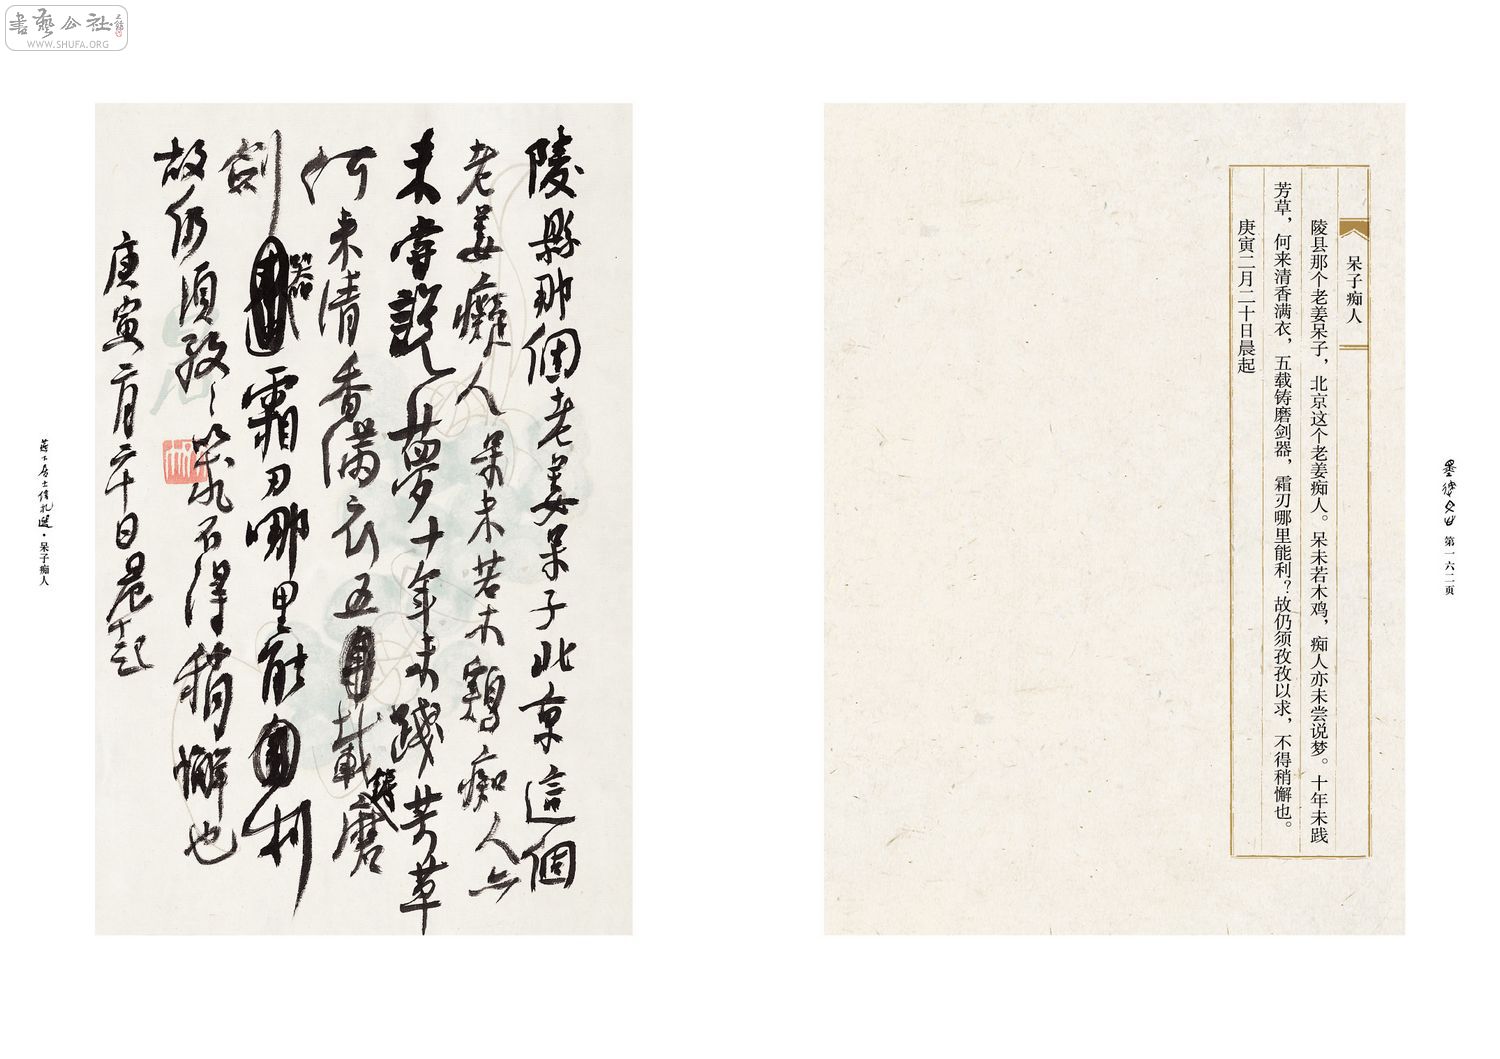 書藝公社
WWW.SHUFA.ORG
陵縣那個老姜呆子北京這個
老姜癡人呆未若木鷄痴人亦
未嘗說夢十年未踐芳草
何来清香滿衣五載鑄磨
劍器霜刃哪里能利
故仍須孜々以求不得稍懈也
庚寅二月二十日晨起
呆子痴人
陵县那个老姜呆子，北京这个老姜痴人。呆未若木鸡，痴人亦未尝说梦。十年未践
芳草，何来清香满衣，五载铸磨剑器，霜刃哪里能利？故仍须孜孜以求，不得稍懈也。
庚寅二月二十日晨起
第一六二页
居士信札選·呆子痴人